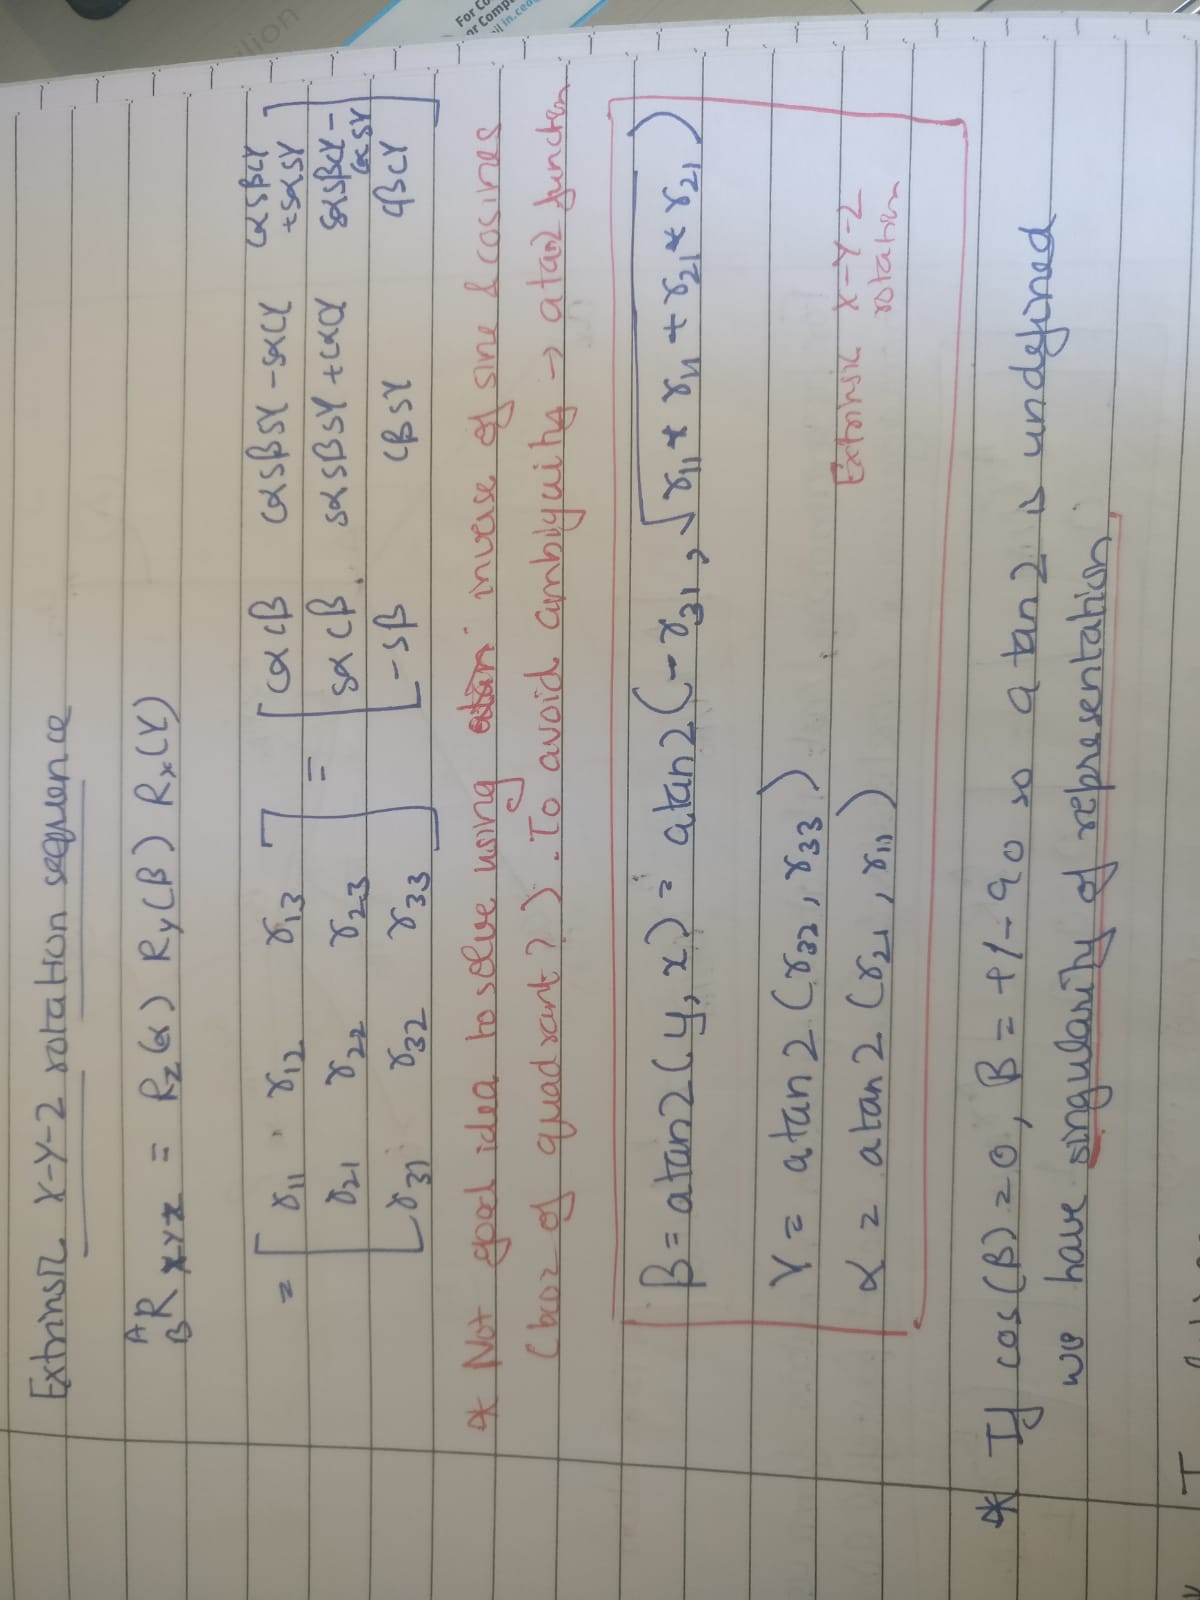 Extrinsic X-Y-Z rotation sequence
ᴬ_B R_XYZ = R_Z(α) R_Y(β) R_X(γ)
= [ r11 r12 r13 ] = [ cαcβ cαsβsγ - sαcγ cαsβcγ + sαsγ ]
[ r21 r22 r23 ] [ sαcβ sαsβsγ + cαcγ sαsβcγ - cαsγ ]
[ r31 r32 r33 ] [ -sβ cβsγ cβcγ ]
* Not good idea to solve using inverse of sine & cosines
(bcoz of quadrant?). To avoid ambiguity → atan2 function
β = atan2(y, x) = atan2(-r31, √r11 * r11 + r21 * r21)
γ = atan2(r32, r33)
α = atan2(r21, r11)
Extrinsic X-Y-Z
rotation
* If cos(β)=0, β = +/-90 so atan2 is undefined
we have singularity of representation
For Co
or Comp
il in.ceo